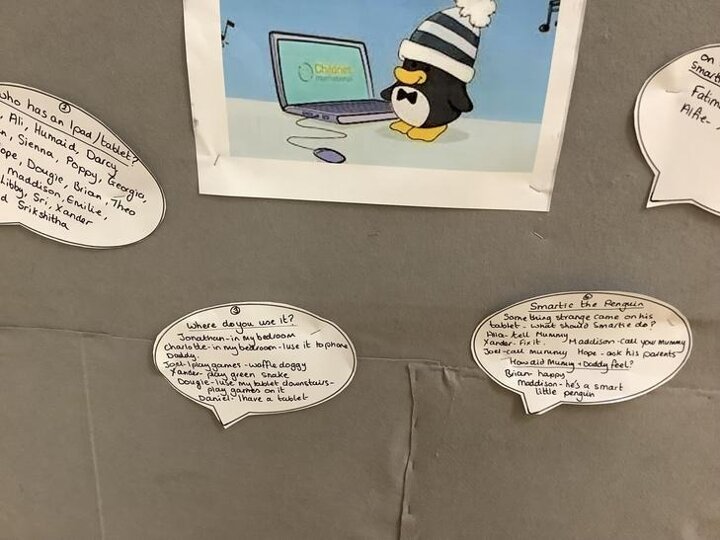 Childnet
International
②
who has an Ipad/tablet?
Ali, Humaid, Darcy
Sienna, Poppy, Georgia,
Dougie, Brian, Theo
Maddison, Emilie,
Libby, Sri, Xander
Srikshitha
on
Smartie
Alfie-
③
Where do you use it?
Jonathan-in my bedroom
Charlotte-in my bedroom-I use it to phone
Daddy.
Joel-I play games - waffle doggy
Xander-play green snake
Dougie-I use my tablet downstairs-
play games on it
Daniel-I have a tablet
Smartie the Penguin
Something strange came on his
tablet - what should Smartie do?
tell Mummy
Xander- Fix it. Maddison-Call you Mummy
Joel-call mummy Hope - ask his parents
How did Mummy + Daddy feel?
Brian- happy
Maddison- he's a smart
little penguin